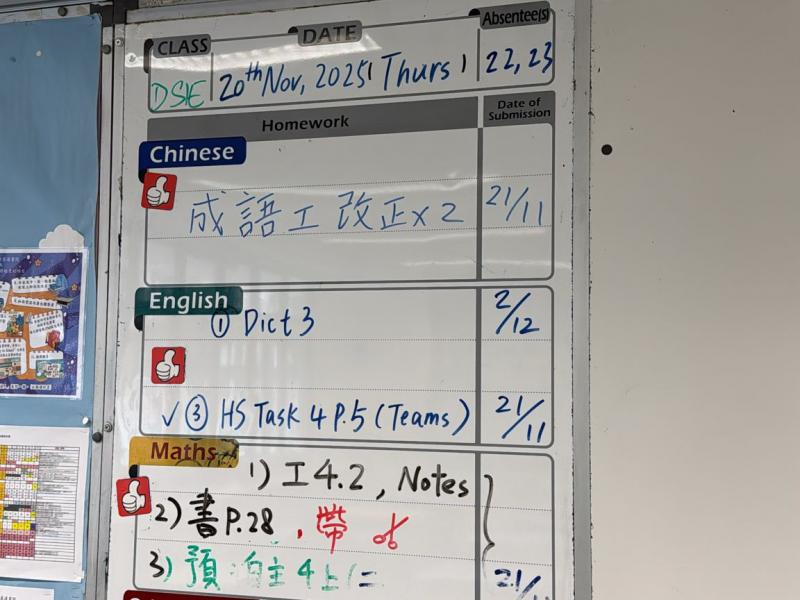 CLASS DATE Absentee(s)
20th Nov, 2025 (Thurs) 22, 23
Homework Date of Submission
Chinese
成語工 改正x2 21/11
English
① Dict 3 2/12
✓ ③ HS Task 4 P.5 (Teams) 21/11
Maths
1) 工4.2, Notes
2) 書P.28, 帶
3) 預:自主4上(二 21/11